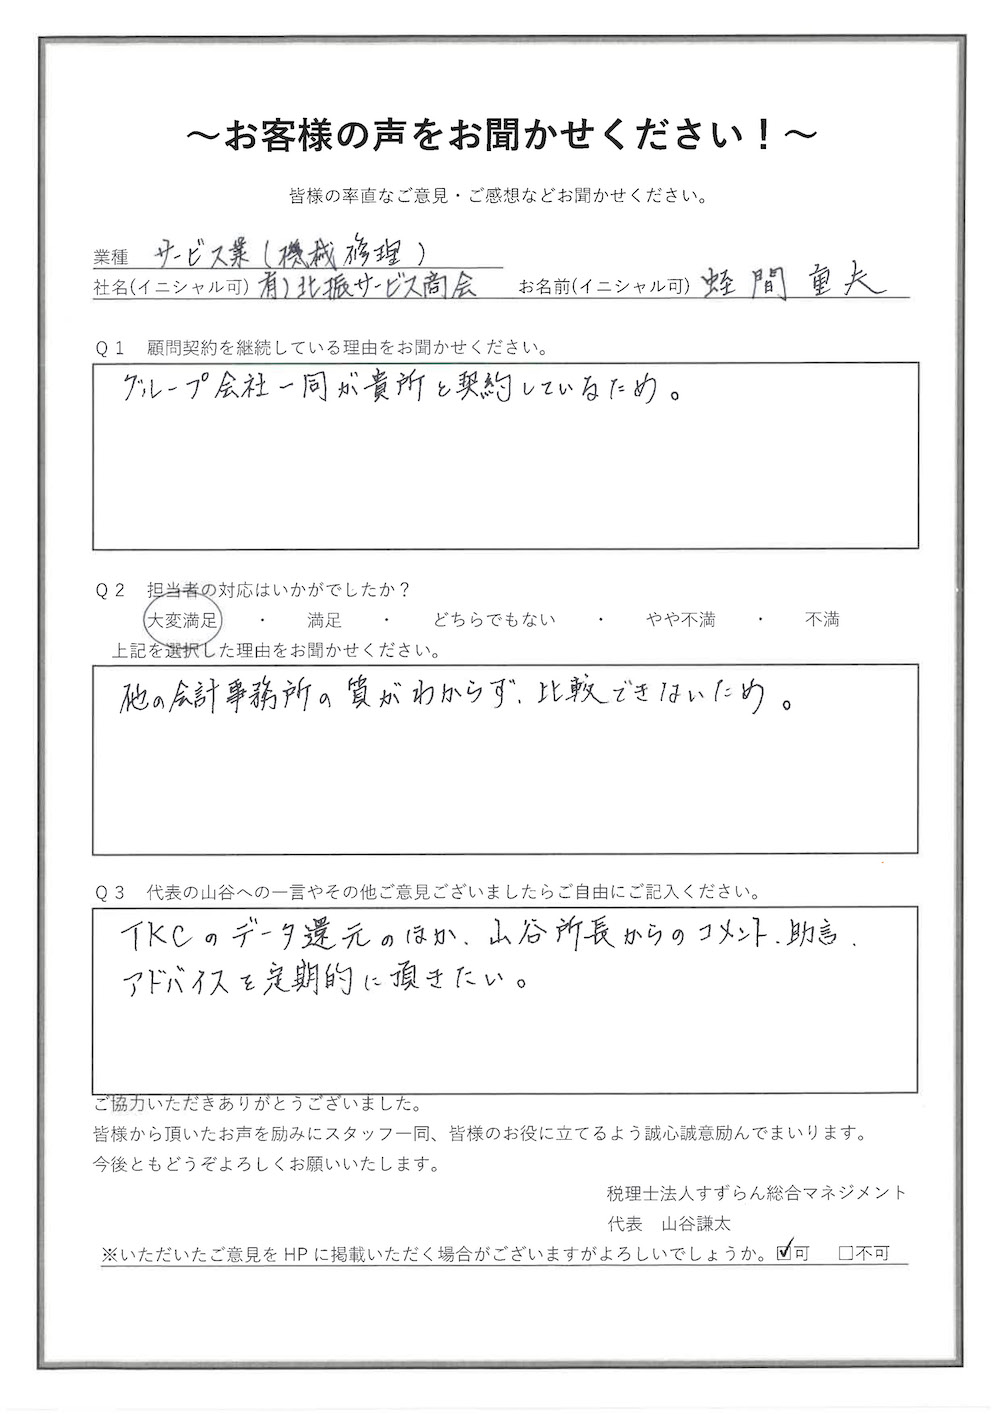 ～お客様の声をお聞かせください！～
皆様の率直なご意見・ご感想などお聞かせください。
業種 サービス業(機械修理)
社名(イニシャル可) 有)北振サービス商会 お名前(イニシャル可) 蛭間重夫
Q1 顧問契約を継続している理由をお聞かせください。
グループ会社一同が貴所と契約しているため。
Q2 担当者の対応はいかがでしたか？
大変満足 ・ 満足 ・ どちらでもない ・ やや不満 ・ 不満
上記を選択した理由をお聞かせください。
他の会計事務所の質がわからず、比較できないため。
Q3 代表の山谷への一言やその他ご意見ございましたらご自由にご記入ください。
TKCのデータ還元のほか、山谷所長からのコメント、助言、
アドバイスを定期的に頂きたい。
ご協力いただきありがとうございました。
皆様から頂いたお声を励みにスタッフ一同、皆様のお役に立てるよう誠心誠意励んでまいります。
今後ともどうぞよろしくお願いいたします。
税理士法人すずらん総合マネジメント
代表 山谷謙太
※いただいたご意見をHPに掲載いただく場合がございますがよろしいでしょうか。☑可 □不可